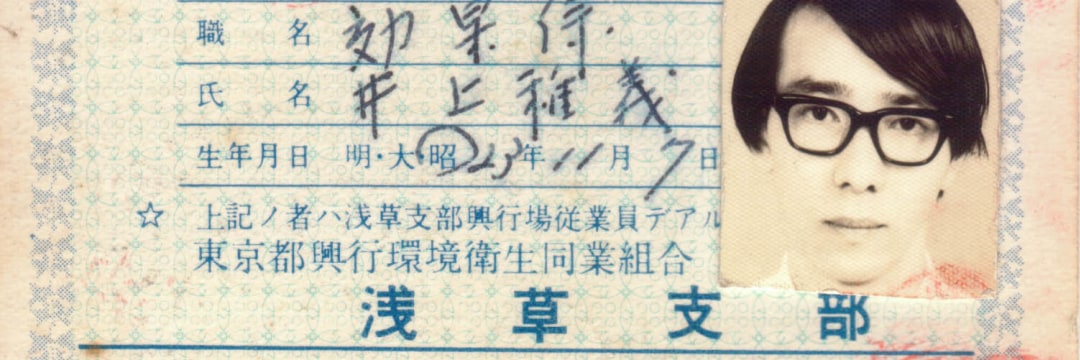 職名 効果係
氏名 井上雅義
生年月日 明・大・昭 23年11月7日
☆ 上記ノ者ハ浅草支部興行場従業員デアル
東京都興行環境衛生同業組合
浅草支部